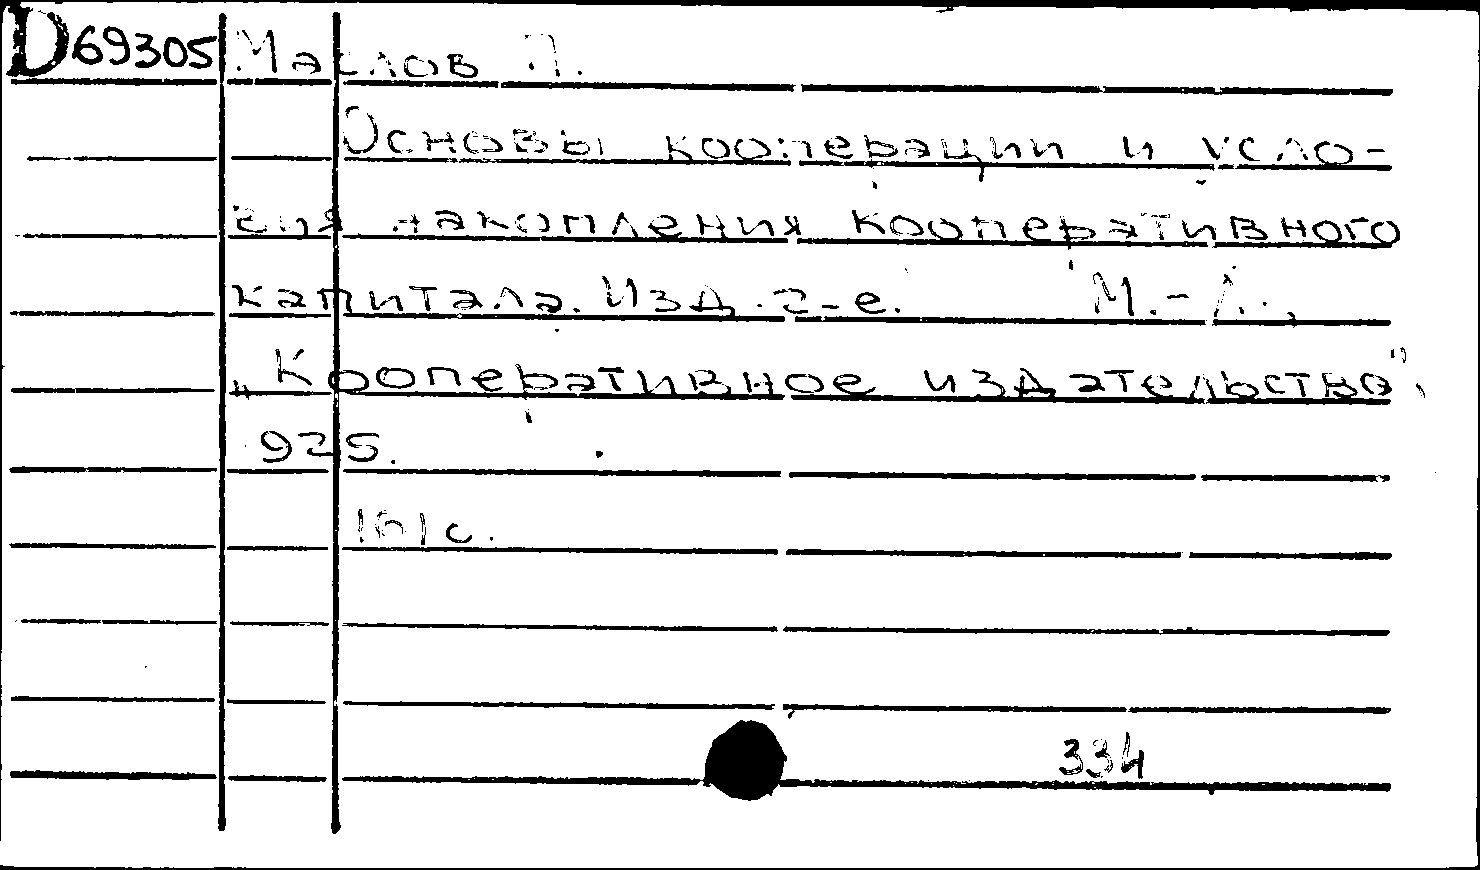 D69305 Маслов П.
Основы кооперации и усло-
вия накопления кооперативного
капитала. Изд. 2-е. М.-Л.,
„Кооперативное издательство",
925.
161 с.
334